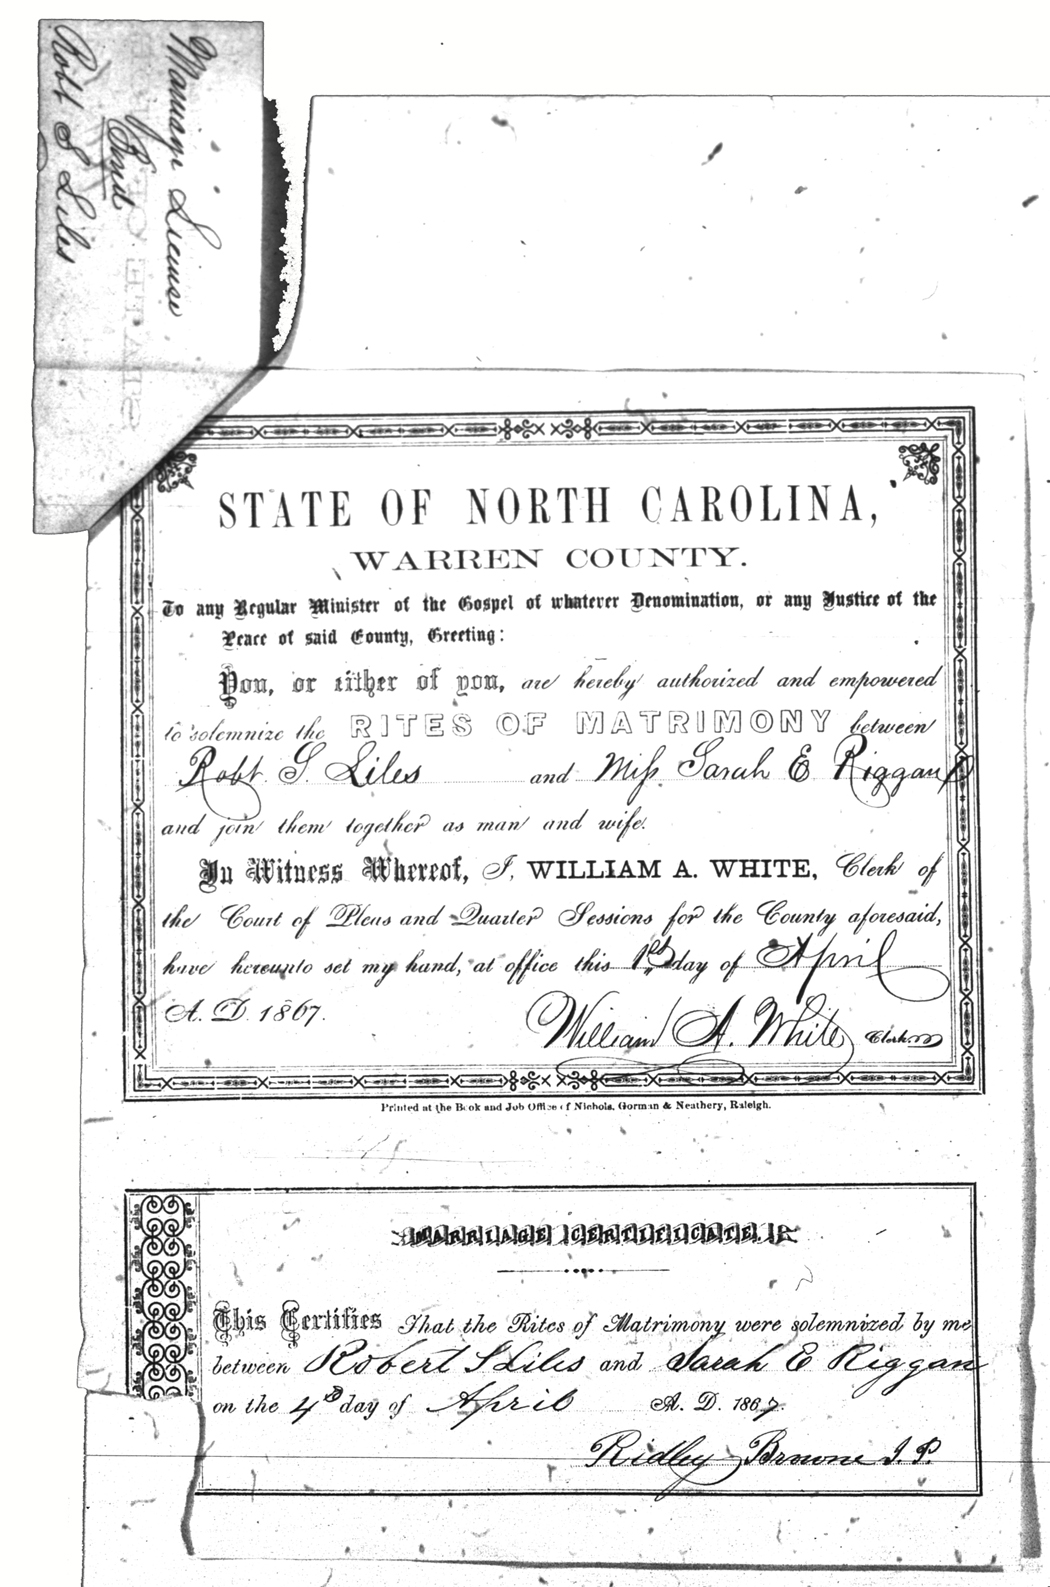 Marriage License
Pind
Robt S Liles
STATE OF NORTH CAROLINA,
WARREN COUNTY.
To any Regular Minister of the Gospel of whatever Denomination, or any Justice of the
Peace of said County, Greeting:
You, or either of you, are hereby authorized and empowered
to solemnize the RITES OF MATRIMONY between
Robt. S. Liles and Miss Sarah E Riggan
and join them together as man and wife.
In Witness Whereof, I, WILLIAM A. WHITE, Clerk of
the Court of Pleas and Quarter Sessions for the County aforesaid,
have hereunto set my hand, at office this 1st day of April
A. D. 1867.
William A. White Clerk.
Printed at the Book and Job Office of Nichols, Gorman & Neathery, Raleigh.
MARRIAGE CERTIFICATE.
This Certifies That the Rites of Matrimony were solemnized by me
between Robert S Liles and Sarah E Riggan
on the 4th day of April A. D. 1867.
Ridley Browne J. P.